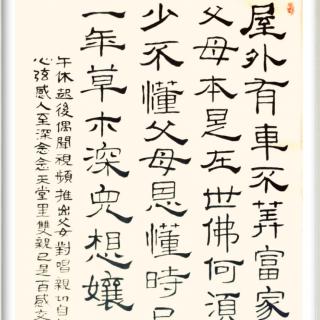 屋外有車不算富家
父母本是在世佛何須
少不懂父母恩懂時已
一年草木深兒想孃
午休起後偶聞視頻推出父女對唱親切自
心弦感人至深念念天堂里雙親已是百感交